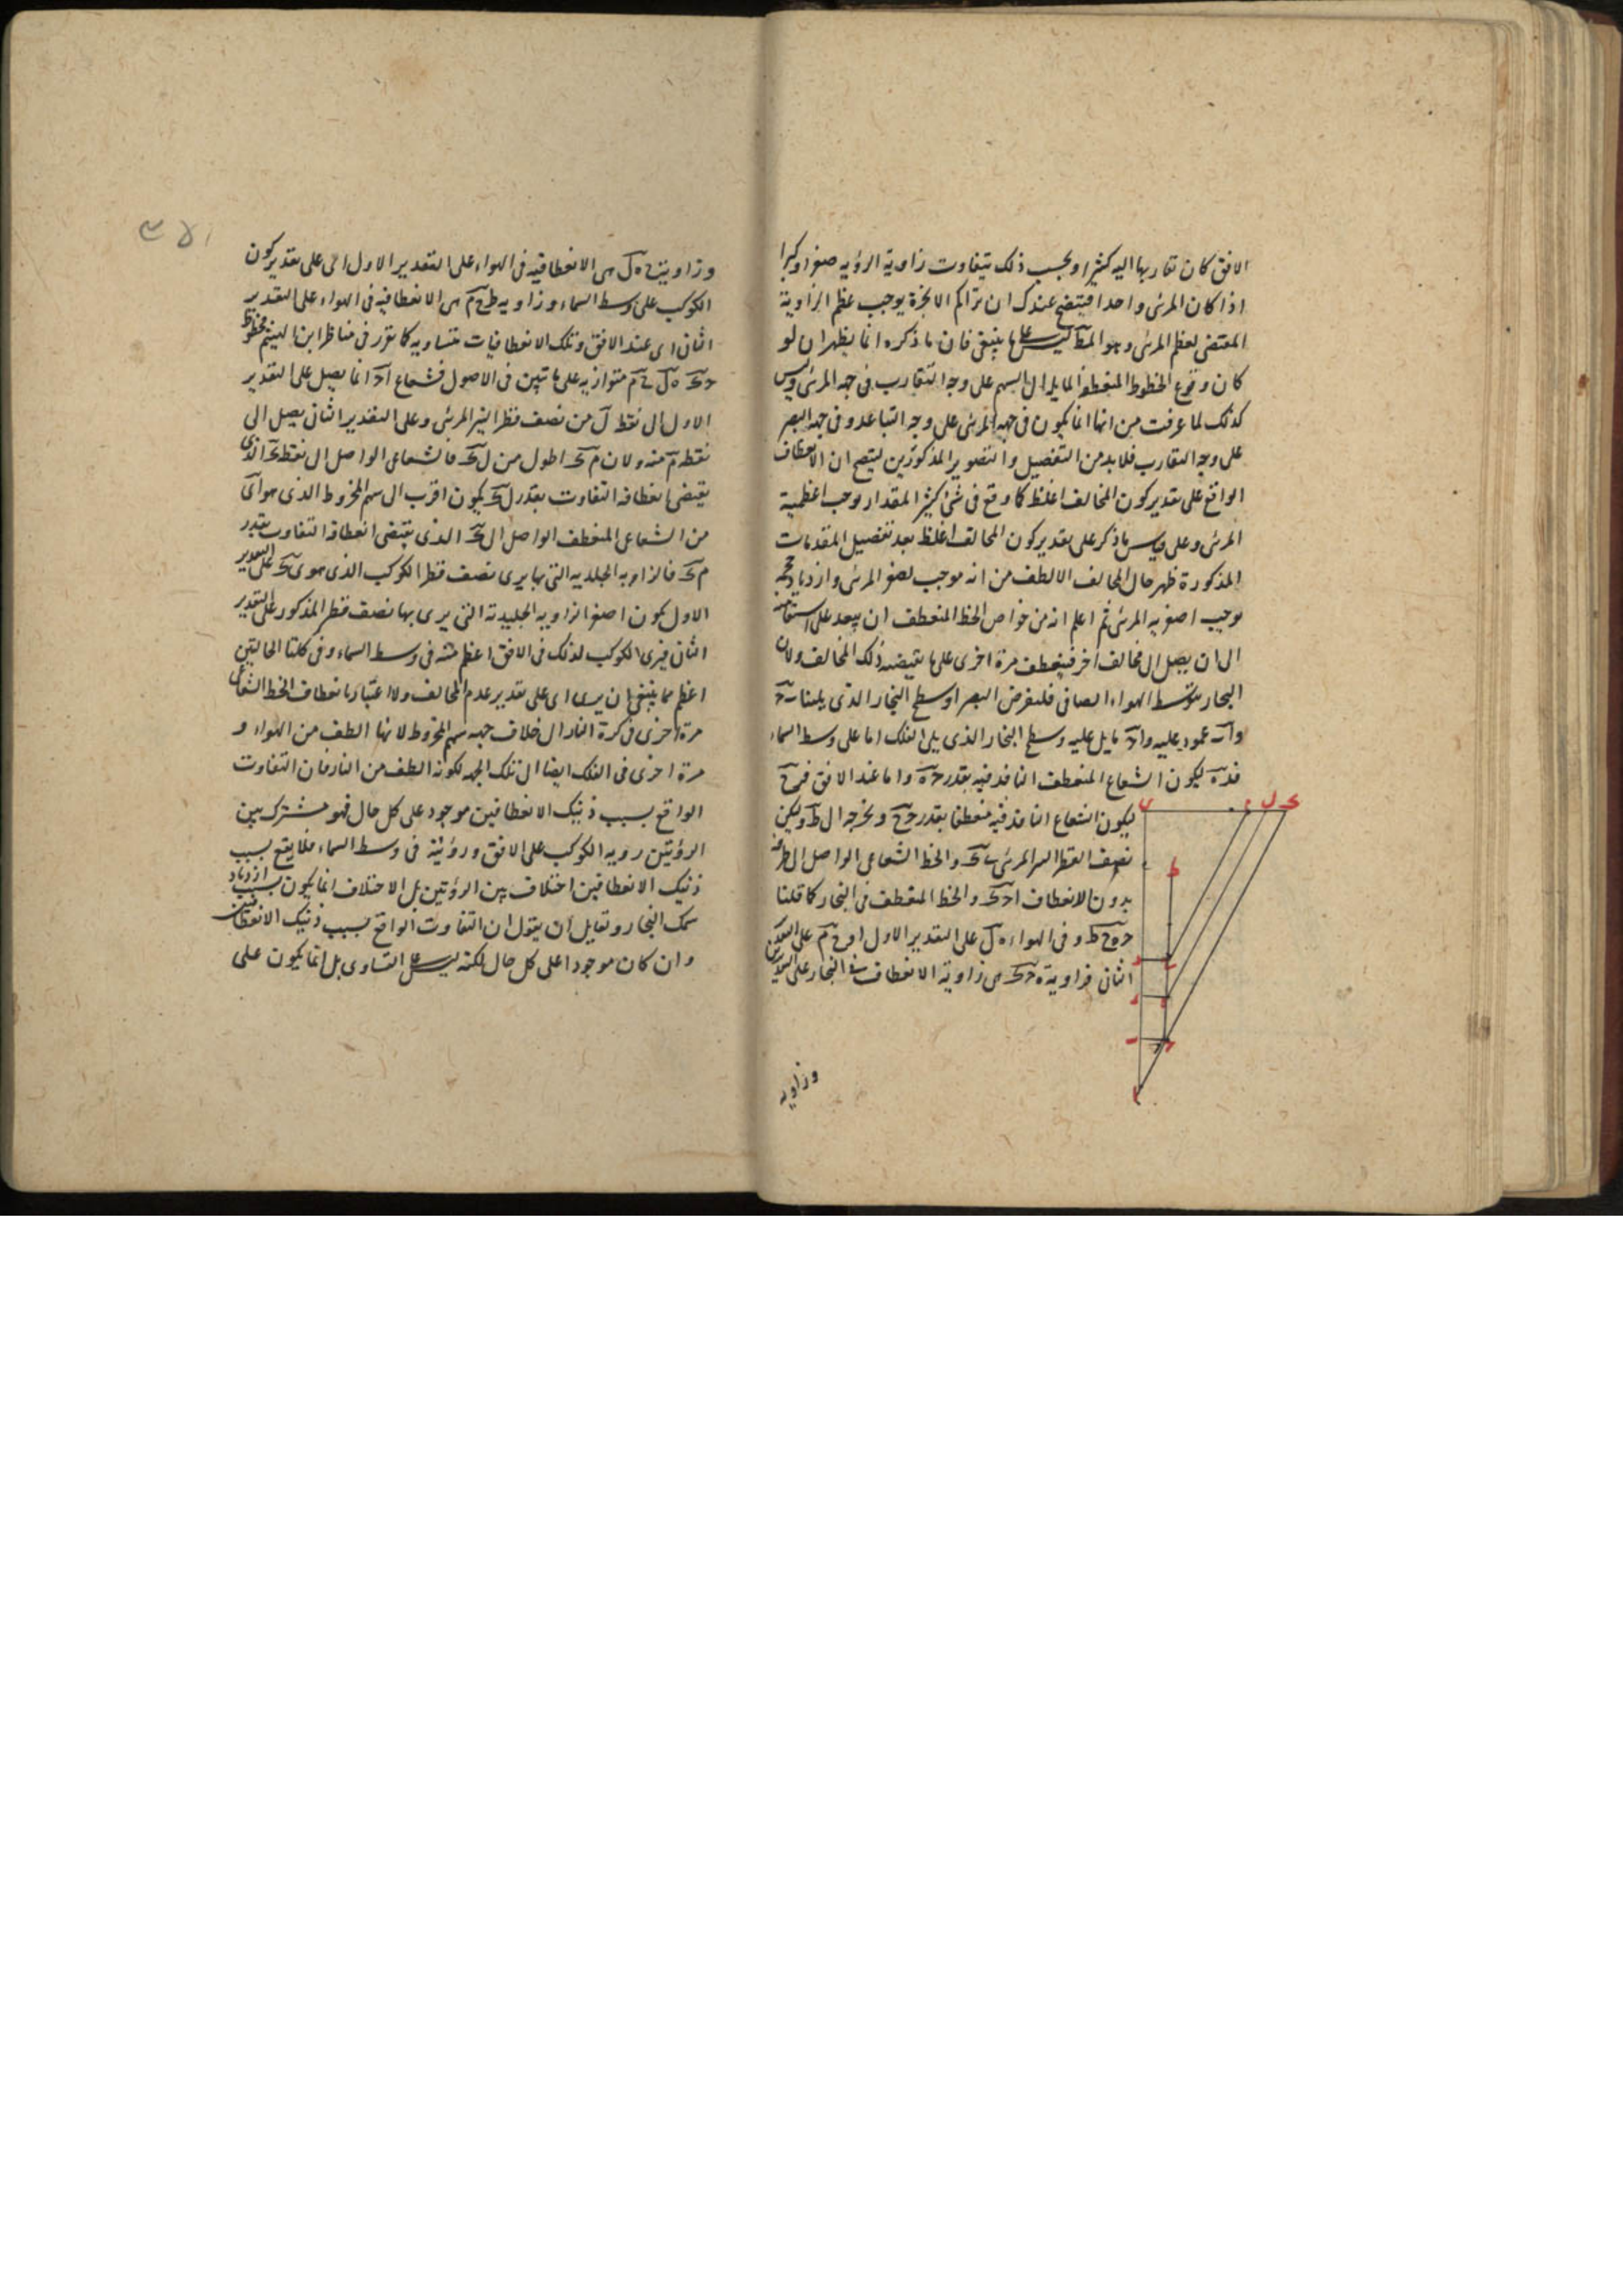 الافق كان تقاربها اليه كثيرا وبحسب ذلك يتفاوت زاوية الرؤيه صغرا وكبرا
اذا كان المرئى واحدا فيتضح عندك ان تراكم الابخرة يوجب عظم الزاوية
المقتضى لعظم المرئى وهو المط ليس على ما ينبغى فان ما ذكره انما يظهر ان لو
كان وقوع الخطوط المنعطفه المايله الى السهم على وجه التقارب فى جهه المرئى وليس
كذلك لما عرفت من انها انما يكون فى جهه المرئى على وجه التباعد وفى جهه البصر
على وجه التقارب فلابد من التفصيل والتصوير المذكورين ليتضح ان الانعطاف
الواقع على تقدير كون المخالف اغلظ كما وقع فى شئ كثير المقدار يوجب اعظمية
المرئى وعلى قياس ما ذكر على تقدير كون المخالف اغلظ بعد تفصيل المقدمات
المذكورة ظهر حال المخالف الالطف من انه موجب لصغر المرئى وازدياد حجمه
يوجب اصغريه المرئى ثم اعلم انه من خواص الخط المنعطف ان يبعد على استقامته
الى ان يصل الى مخالف اخر فينعطف مرة اخرى على ما يقتضيه ذلك المخالف ولان
البخار يتوسط الهواء الصافى فلنفرض البصر ا وسطح البخار الذى يلينا ب ج
وا ب عمود عليه وا ج مايل عليه وسطح البخار الذى يلى الفلك اما على وسط السماء
فد ه ليكون الشعاع المنعطف النافذ فيه بقدر ج ه واما عند الافق فر ح
ليكون الشعاع النافذ فيه منعطفا بقدر ج ح ونخرجه الى ط وليكن
نصف القطر المرئى ى ك والخط الشعاعى الواصل الى طرفه
بدون الانعطاف ا ج ك والخط المنعطف فى البخار كما قلنا
ج ه ح ط وفى الهواء ه ل على التقدير الاول او ح م على التقدير
الثانى فزاوية ه ج ك هى زاوية الانعطاف فى البخار على التقديرين
وزاويه
وزاوية ح ه ل هى الانعطافيه فى الهواء على التقدير الاول اى على تقدير كون
الكوكب على وسط السماء وزاويه ط ح م هى الانعطافيه فى الهواء على التقدير
الثانى اى عند الافق وتلك الانعطافيات متساويه كما تقرر فى مناظر ابن الهيثم فخطوط
ج ك ه ل ح م متوازيه على ما تبين فى الاصول فشعاع ا ج انما يصل على التقدير
الاول الى نقطه ل من نصف قطر النير المرئى وعلى التقدير الثانى يصل الى
نقطه م منه ولان م ك اطول من ل ك فالشعاعى الواصل الى نقطه ك الذى
يقتضى انعطافه التفاوت بقدر ل ك يكون اقرب الى سهم المخروط الذى هو ا ى
من الشعاعى المنعطف الواصل الى ك الذى يقتضى انعطافه التفاوت بقدر
م ك فالزاويه الجليديه التى بها يرى نصف قطر الكوكب الذى هو ى ك على التقدير
الاول يكون اصغر الزاويه الجليدية التى يرى بها نصف قطر المذكور على التقدير
الثانى فيرى الكوكب لذلك فى الافق اعظم منه فى وسط السماء وفى كلتا الحالتين
اعظم مما ينبغى ان يرى اى على تقدير عدم المخالف ولا اعتبار بانعطاف الخط الشعاعى
مرة اخرى فى كرة النار الى خلاف جهه سهم المخروط لانها الطف من الهواء و
مرة اخرى فى الفلك ايضا الى تلك الجهه لكونه الطف من النار فان التفاوت
الواقع بسبب ذينك الانعطافين موجود على كل حال فهو مشترك بين
الرؤيتين رويه الكوكب على الافق ورؤيته فى وسط السماء فلا يقع بسبب
ذينك الانعطافين اختلاف بين الرؤيتين بل الاختلاف انما يكون بسبب ازدياد
سمك البخار ولقايل ان يقول ان التفاوت الواقع بسبب ذينك الانعطافين
وان كان موجودا على كل حال لكنه ليس على التساوى بل انما يكون على